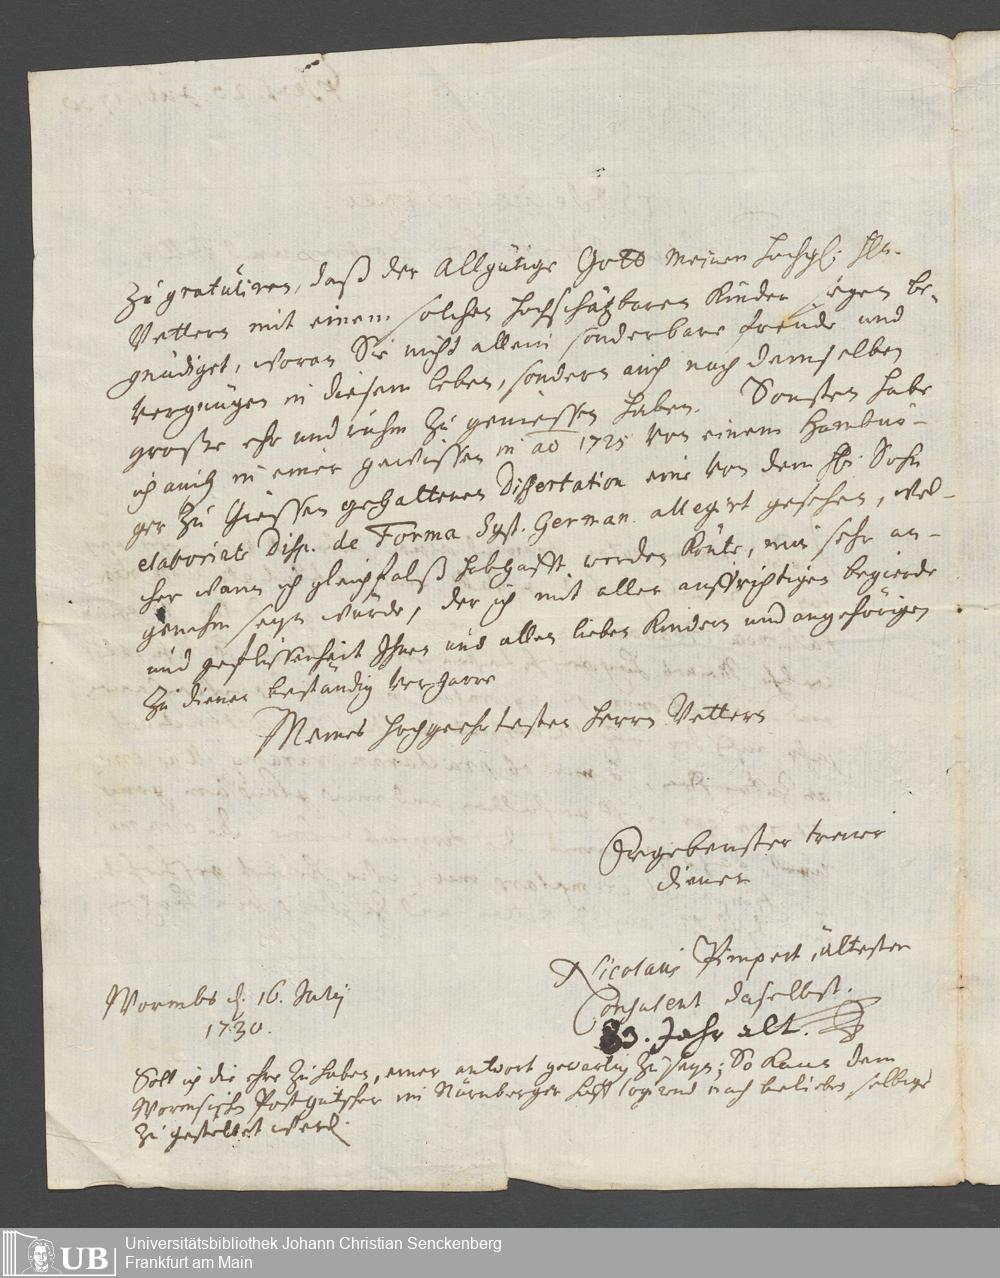 Zu gratuliren, daß der Allgütige Gott meinen hochgl: Hn.
Vettern mit einem solchen hochschätzbaren Kinder Seegen be-
gnädiget, woran Sie nicht allein sonderbare freude und
Vergnügen in diesem leben, sondern auch nach demselben
große ehr und ruhm zu geniessen haben. Sonsten habe
ich auch in einer gewissen in ao 1725 von einem Hambur-
ger zu Giessen gehaltenen Dissertation eine von dem Hn: Sohn
elaborirte Disp. de Forma Syst. German. allegirt gesehen, wel-
cher wann ich gleichfalß habhafft werden könte, mir sehr an-
genehm seyn würde, der ich mit aller auffrichtigen begierde
und geflissenheit Ihnen und allen lieben Kindern und angehörigen
zu dienen beständig verharre
Meines hochgeehrtesten Herrn Vettern
Ergebenster treuer
diener
Nicolaus Pimpert, ältester
Consulent daselbst.
83. Jahr alt.
Wormbs d. 16. July
1730.
Solt ich die ehre zu haben, einer antwort gewärtig zu seyn; So kann dem
Wormsischen Postgutscher im Nürnberger hoff logirend nach belieben selbige
zu gestellet werd.
UB
Universitätsbibliothek Johann Christian Senckenberg
Frankfurt am Main